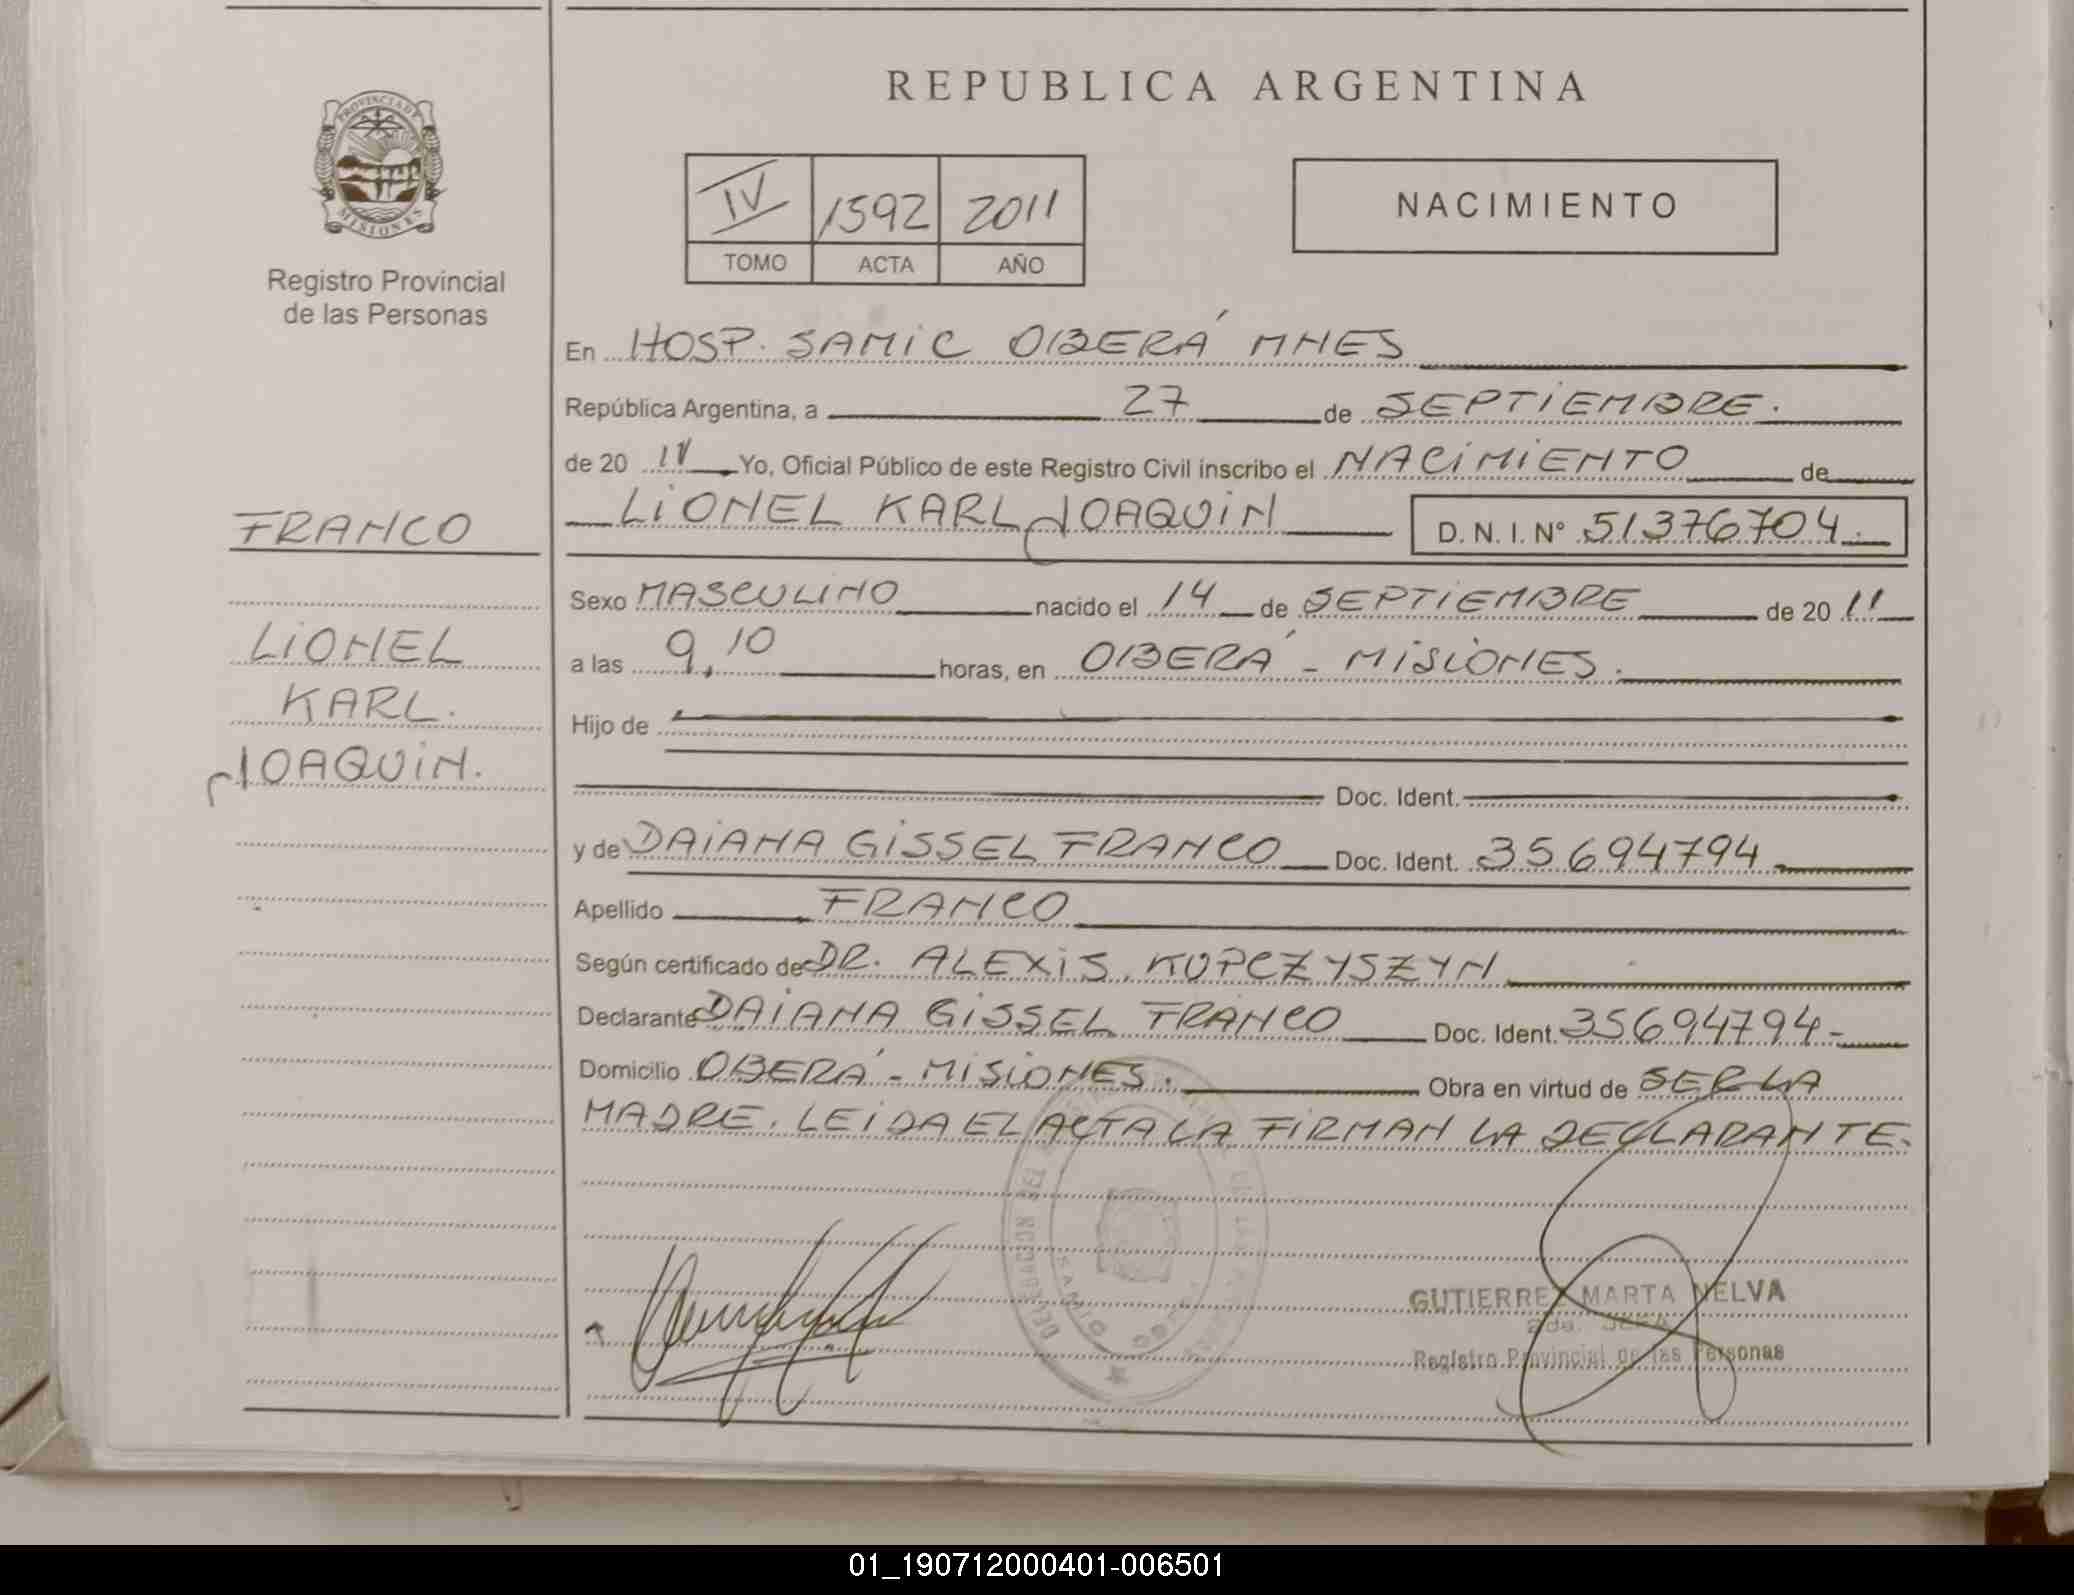 REPUBLICA ARGENTINA
PROVINCIA DE
MISIONES
Registro Provincial
de las Personas
IV 1592 2011
TOMO ACTA AÑO
NACIMIENTO
En HOSP. SAMIC OBERÁ MNES
República Argentina, a 27 de SEPTIEMBRE.
de 20 11 Yo, Oficial Público de este Registro Civil inscribo el NACIMIENTO de
LIONEL KARL JOAQUIN D. N. I. Nº 51376704.
FRANCO
LIONEL
KARL.
JOAQUIN.
Sexo MASCULINO nacido el 14 de SEPTIEMBRE de 20 11
a las 9,10 horas, en OBERÁ - MISIONES.
Hijo de
Doc. Ident.
y de DAIANA GISSEL FRANCO Doc. Ident. 35694794
Apellido FRANCO
Según certificado de DR. ALEXIS KUPCZYSZYN
Declarante DAIANA GISSEL FRANCO Doc. Ident. 35694794-
Domicilio OBERÁ - MISIONES. Obra en virtud de SER LA
MADRE. LEIDA EL ACTA LA FIRMAN LA DECLARANTE.
DELEGACION DEL
GUTIERREZ MARTA NELVA
2da. JEFA
Registro Provincial de las Personas
01_190712000401-006501